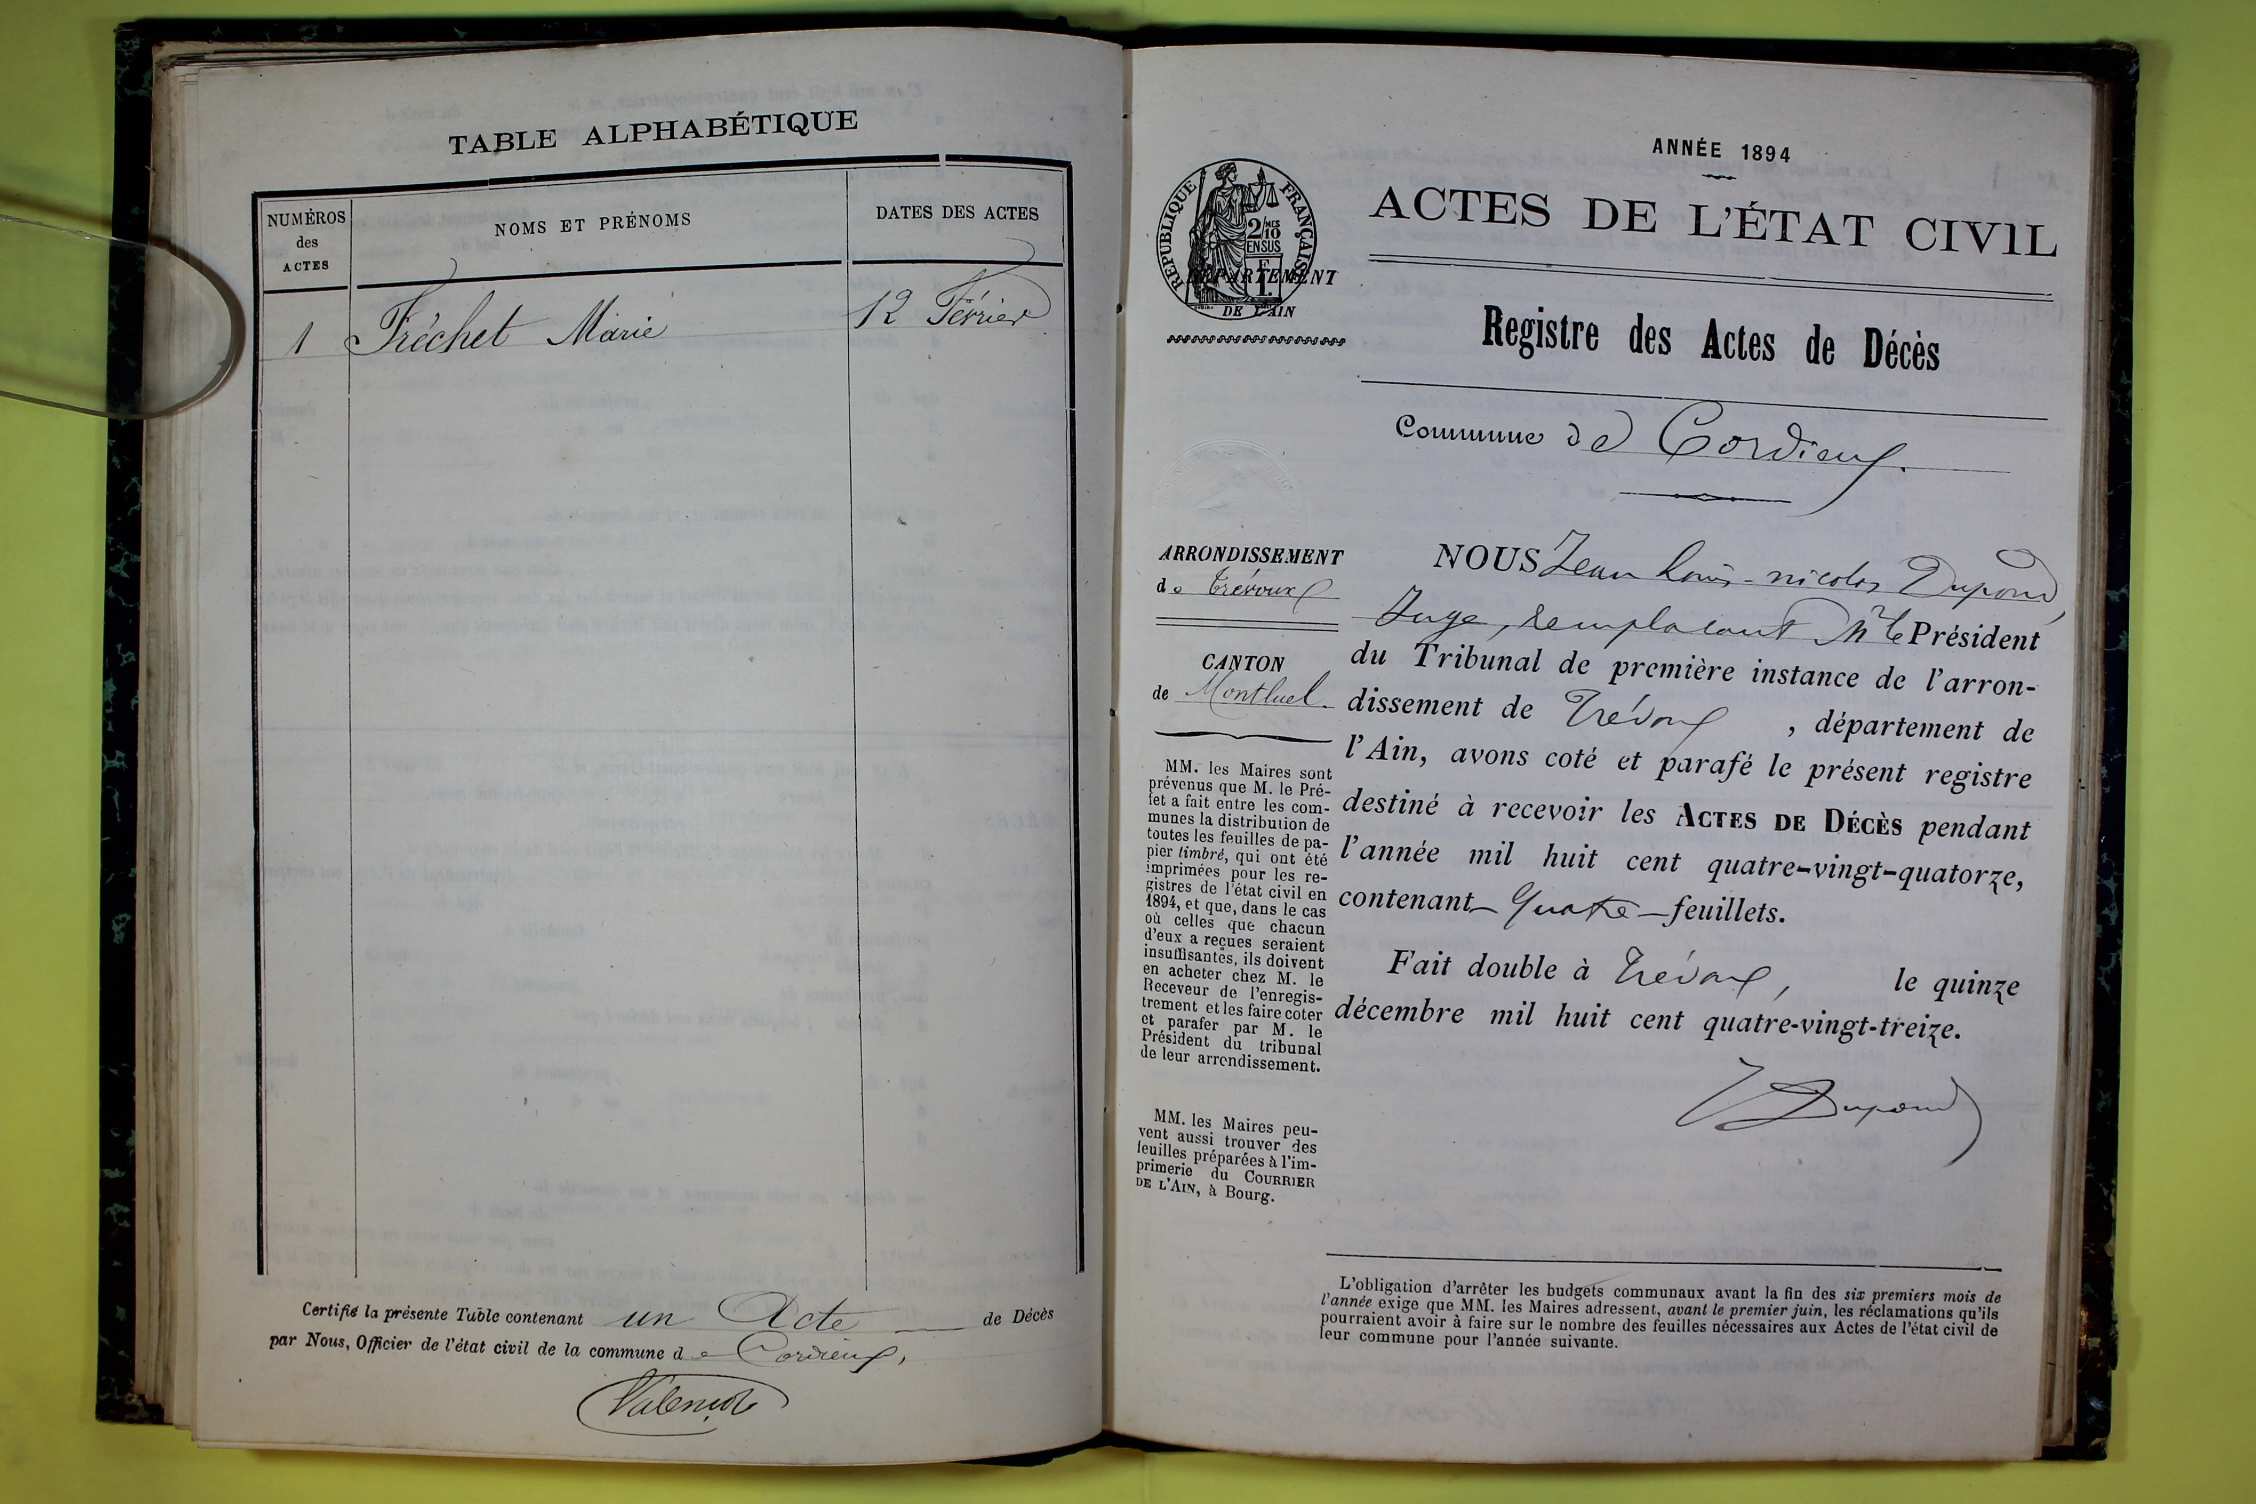 TABLE ALPHABÉTIQUE
NUMÉROS des ACTES
NOMS ET PRÉNOMS
DATES DES ACTES
1 Fréchet Marie 12 Février
Certifié la présente Table contenant un Acte de Décès
par Nous, Officier de l'état civil de la commune de Cordieux,
ANNÉE 1894
ACTES DE L'ÉTAT CIVIL
RÉPUBLIQUE FRANÇAISE
2/10
MES
EN SUS
1 F.
DÉPARTEMENT
DE L'AIN
Registre des Actes de Décès
Commune de Cordieux.
ARRONDISSEMENT
de Trévoux
CANTON
de Montluel.
MM. les Maires sont
prévenus que M. le Pré-
fet a fait entre les com-
munes la distribution de
toutes les feuilles de pa-
pier timbré, qui ont été
imprimées pour les re-
gistres de l'état civil en
1894, et que, dans le cas
où celles que chacun
d'eux a reçues seraient
insuffisantes, ils doivent
en acheter chez M. le
Receveur de l'enregis-
trement et les faire coter
et parafer par M. le
Président du tribunal
de leur arrondissement.
MM. les Maires peu-
vent aussi trouver des
feuilles préparées à l'im-
primerie du COURRIER
DE L'AIN, à Bourg.
NOUS Jean Louis-nicolas Dupond,
Juge, remplacant Mr le Président
du Tribunal de première instance de l'arron-
dissement de Trévoux, département de
l'Ain, avons coté et parafé le présent registre
destiné à recevoir les ACTES DE DÉCÈS pendant
l'année mil huit cent quatre-vingt-quatorze,
contenant Quatre feuillets.
Fait double à Trévoux, le quinze
décembre mil huit cent quatre-vingt-treize.
Dupond
L'obligation d'arrêter les budgets communaux avant la fin des six premiers mois de
l'année exige que MM. les Maires adressent, avant le premier juin, les réclamations qu'ils
pourraient avoir à faire sur le nombre des feuilles nécessaires aux Actes de l'état civil de
leur commune pour l'année suivante.